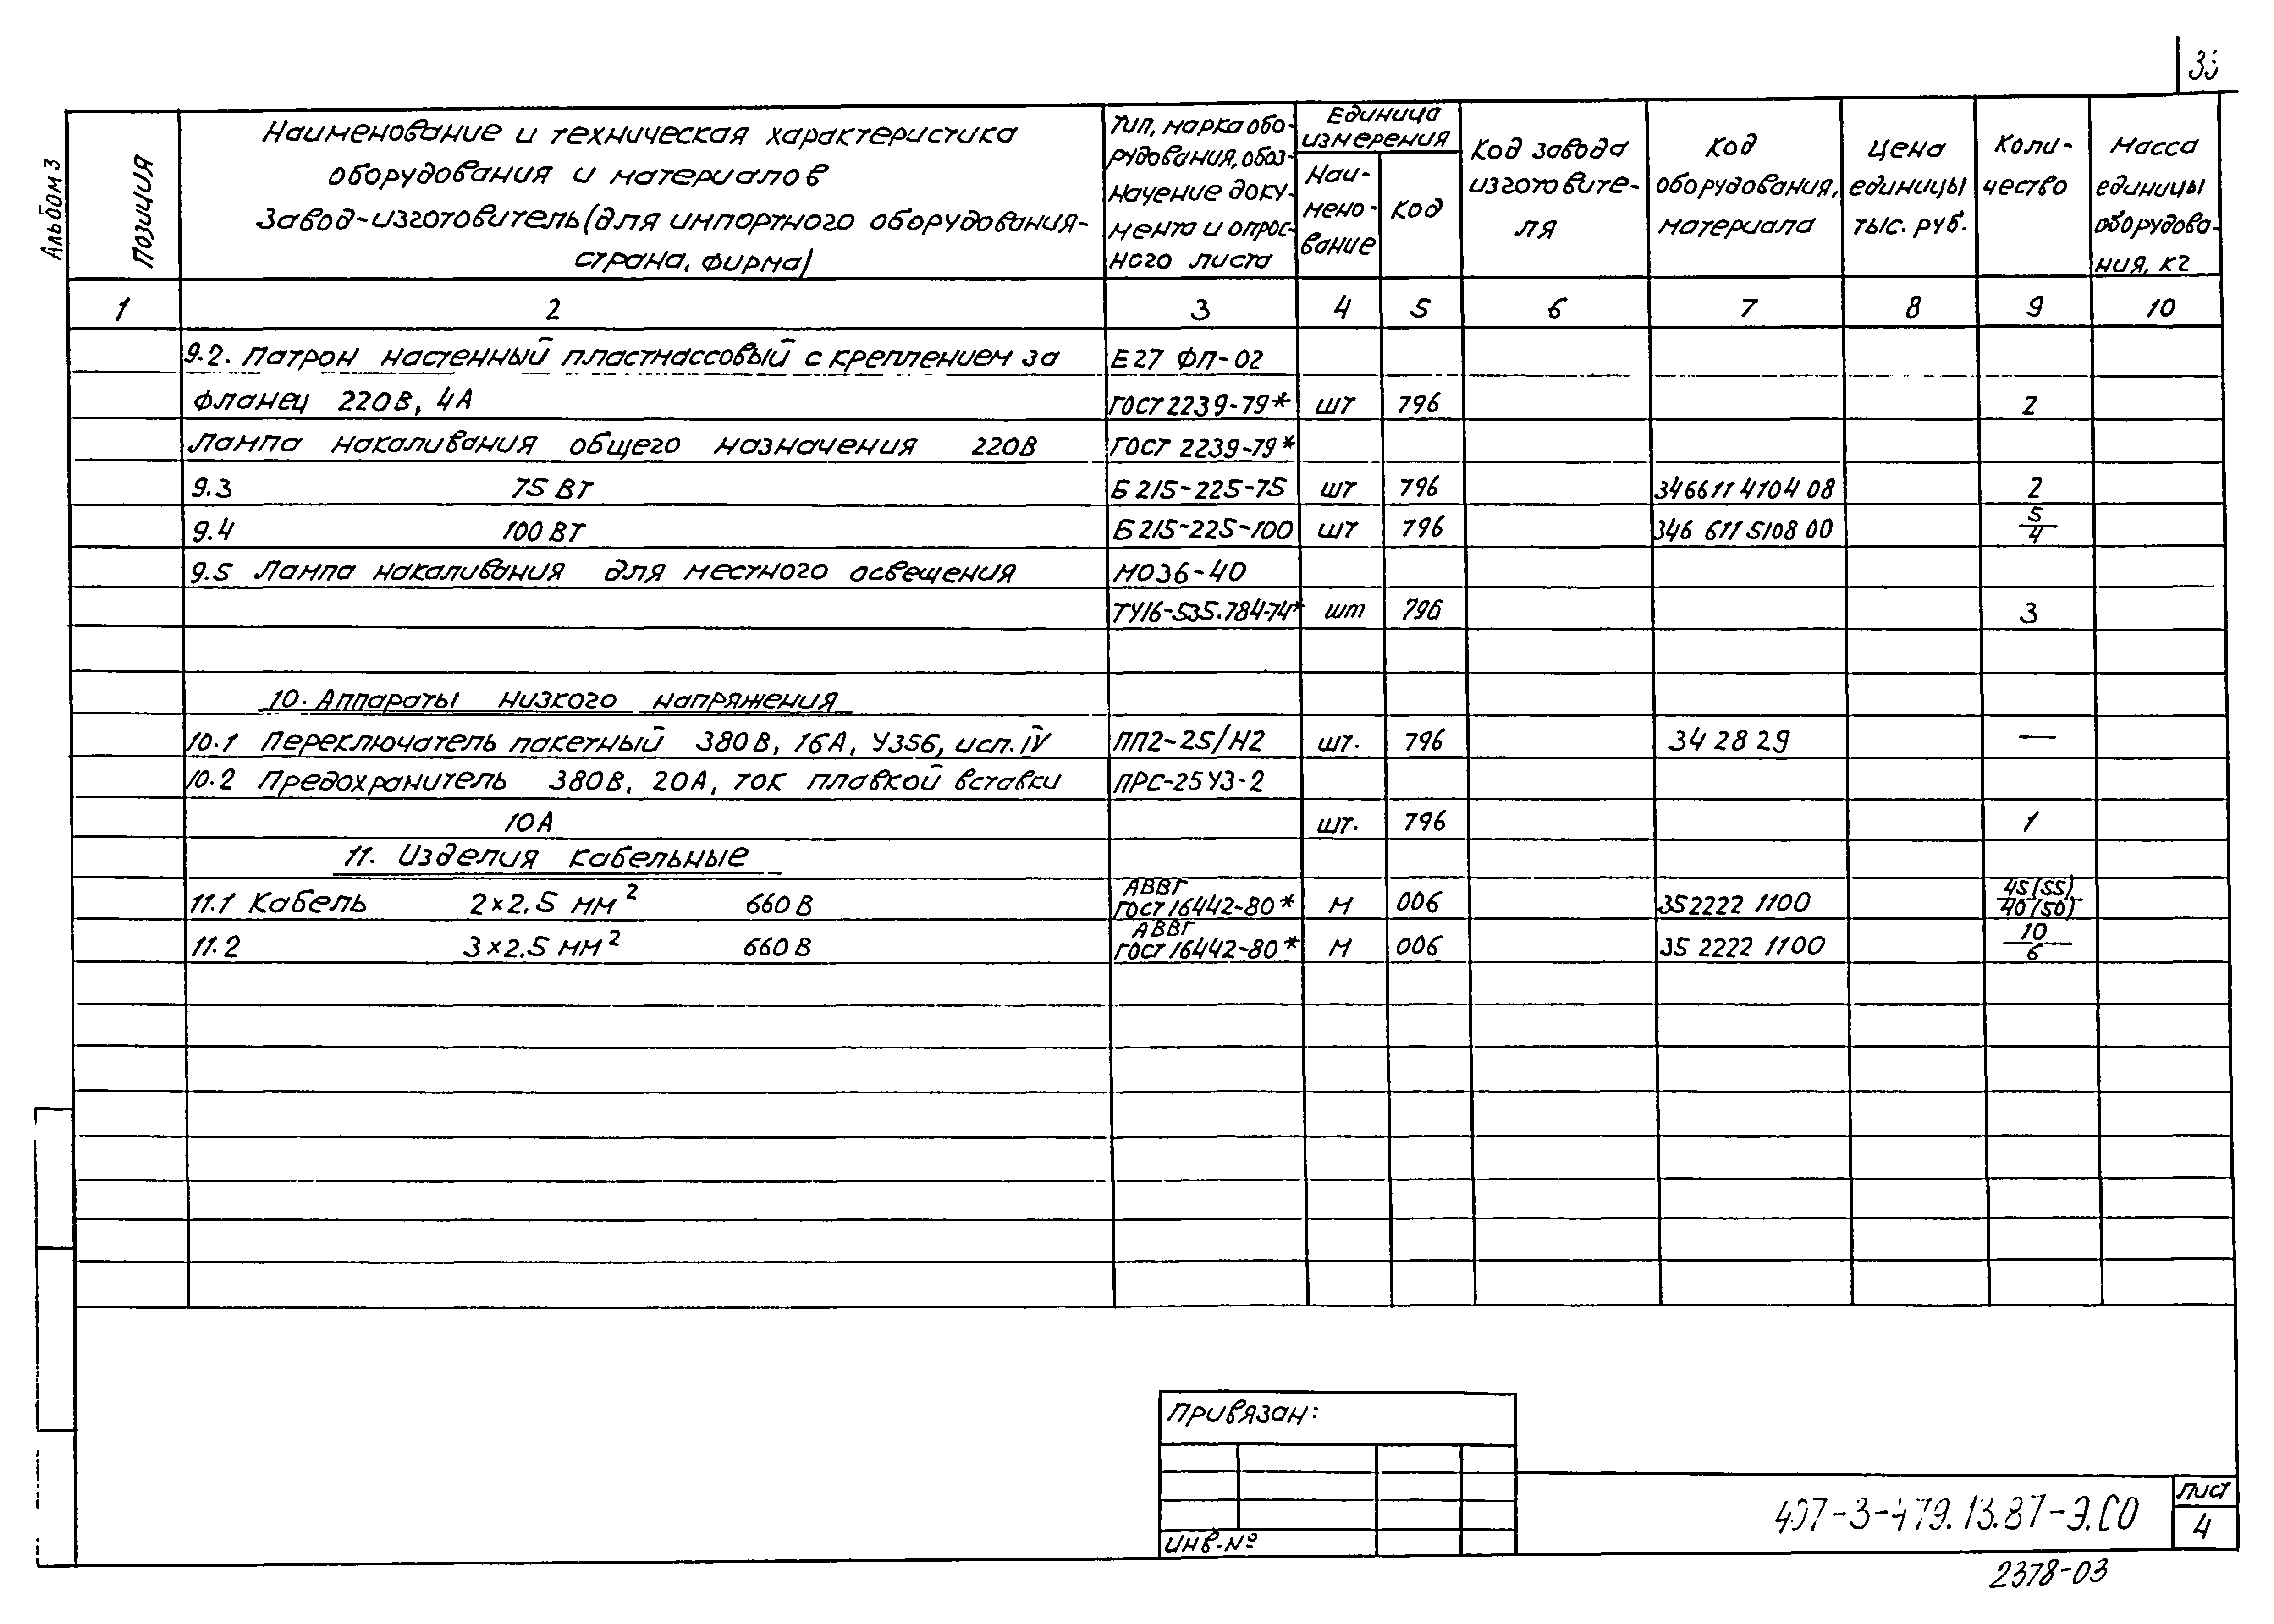 Альбом 3
Позиция
Наименование и техническая характеристика
оборудования и материалов
Завод-изготовитель (для импортного оборудования-
страна, фирма)
Тип, марка обо-
рудования, обоз-
начение доку-
мента и опрос-
ного листа
Единица
измерения
Наи-
мено-
вание
Код
Код завода
изготовите-
ля
Код
оборудования,
материала
Цена
единицы
тыс. руб.
Коли-
чество
Масса
единицы
оборудова-
ния, кг
1 2 3 4 5 6 7 8 9 10
9.2. Патрон настенный пластмассовый с креплением за Е27 ФП-02
фланец 220В, 4А ГОСТ 2239-79* шт 796 2
Лампа накаливания общего назначения 220В ГОСТ 2239-79*
9.3 75 Вт Б 215-225-75 шт 796 346611 4104 08 2
9.4 100 Вт Б 215-225-100 шт 796 346 611 5108 00 5/4
9.5 Лампа накаливания для местного освещения МО36-40
ТУ16-535.784-74* шт 796 3
10. Аппараты низкого напряжения
10.1 Переключатель пакетный 380В, 16А, У356, исп. IV ПП2-25/Н2 шт. 796 34 28 29 —
10.2 Предохранитель 380В, 20А, ток плавкой вставки ПРС-25У3-2
10А шт. 796 1
11. Изделия кабельные
11.1 Кабель 2×2.5 мм² 660В АВВГ
ГОСТ 16442-80* м 006 352222 1100 45(55)/40(50)
11.2 3×2.5 мм² 660В АВВГ
ГОСТ 16442-80* м 006 35 2222 1100 10/6
Привязан:
Инв.№
407-3-479.13.87-Э.СО
Лист
4
2378-03